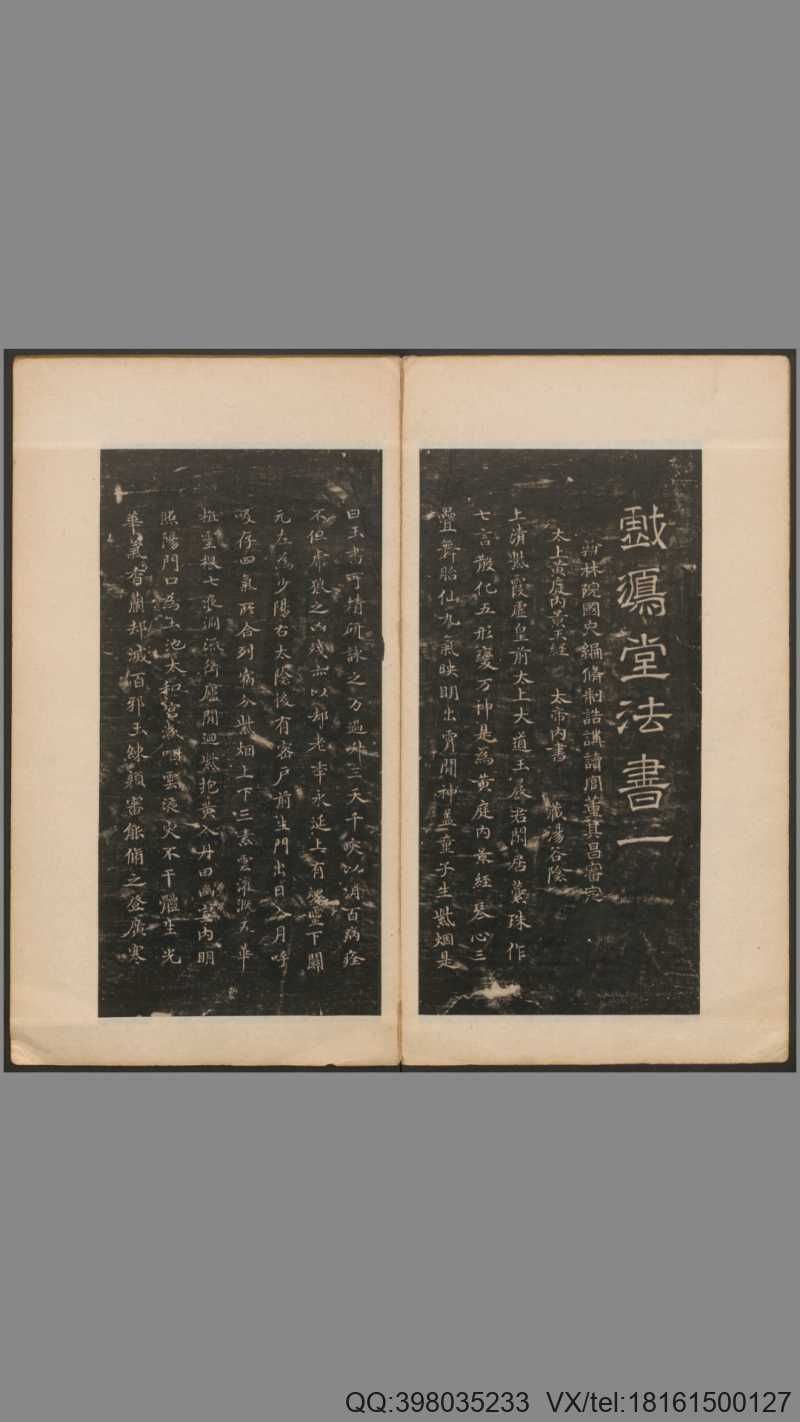 戲鴻堂法書一
翰林院國史編脩制誥講讀官董其昌審定
太上黃庭內景玉經 太帝內書 藏暘谷陰
上清紫霞虛皇前太上大道玉晨君閒居蘂珠作
七言散化五形變万神是為黃庭內景經琴心三
疊儛胎仙九氣暎明出霄間神蓋童子生紫烟是
曰玉書可精研詠之万過昇三天千灾以消百病痊
不但虎狼之凶殘亦以却老年永延上有䰟靈下關
元左為少陽右太陰後有密戶前生門出日入月呼
吸存四氣所合列宿分紫烟上下三素雲灌溉五華
植靈根七液洞流衝廬間迴紫抱黃入丹田幽室內明
照陽門口為玉池太和官漱咽靈液灾不干體生光
華氣香蘭却滅百邪玉練顏審能脩之登廣寒
QQ:398035233 VX/tel:18161500127